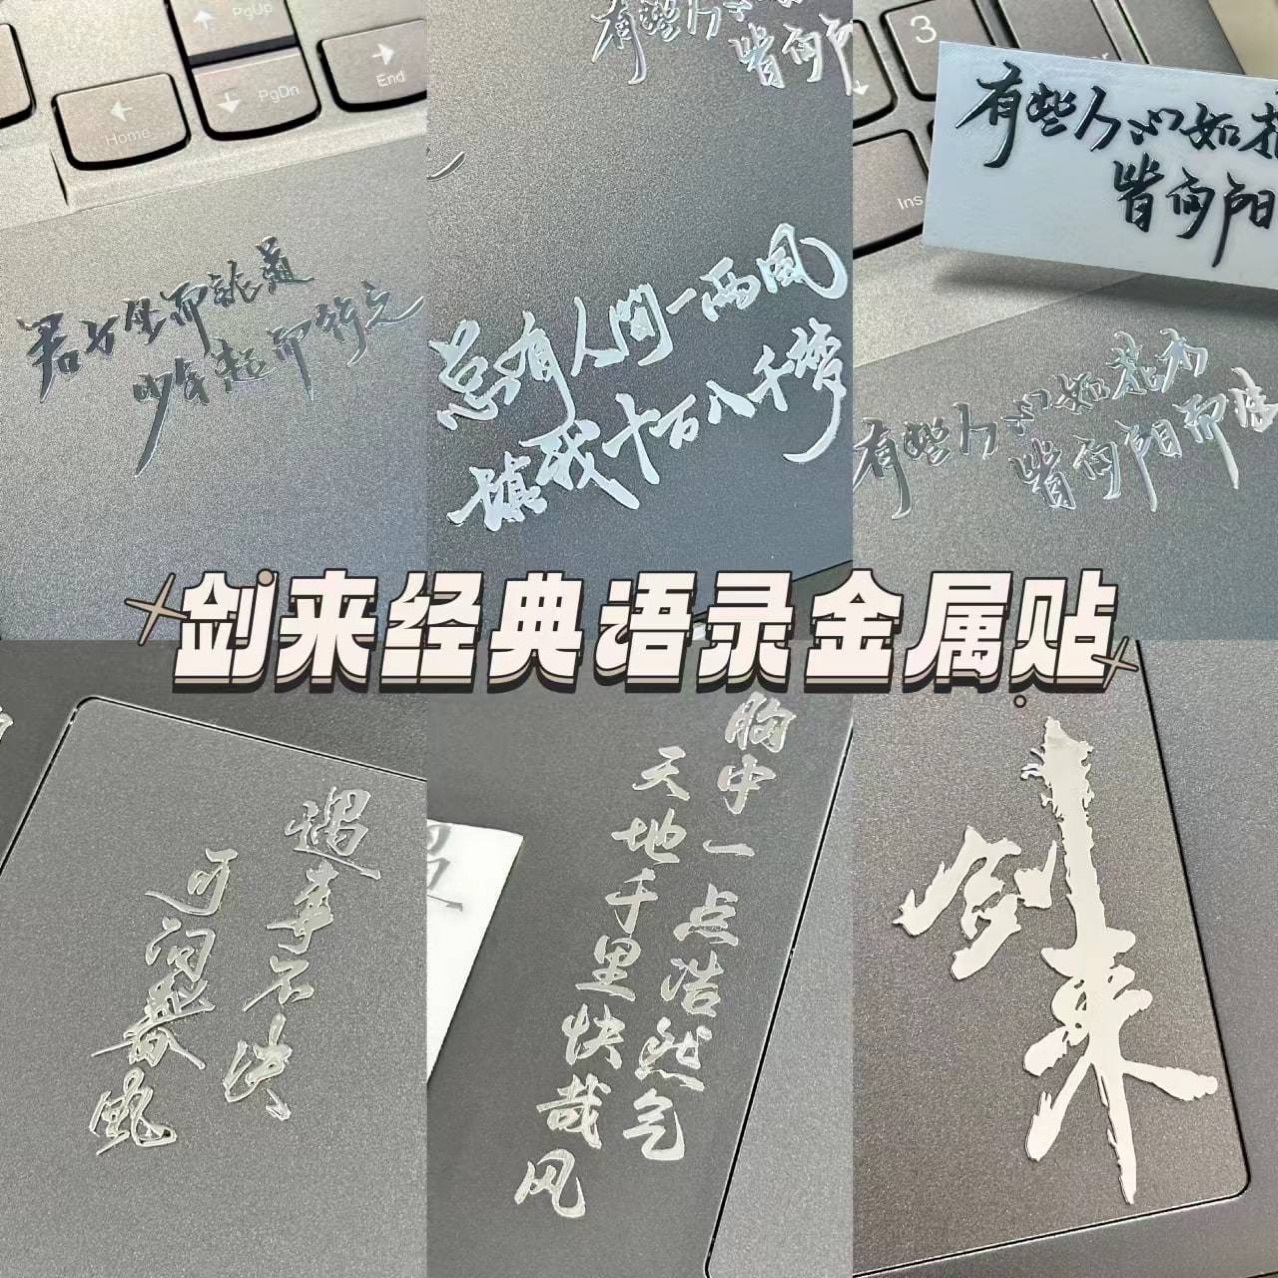 PgUp
Home
PgDn
End
君子坐而論道
少年起而行之
有些人
皆向阳
总有人间一两風
填我十万八千梦
3
Ins
有些人心如花
皆向阳
有些人心如花木
皆向阳而
剑来经典语录金属贴
遇事不决
可问春風
胸中一点浩然气
天地千里快哉风
剑来